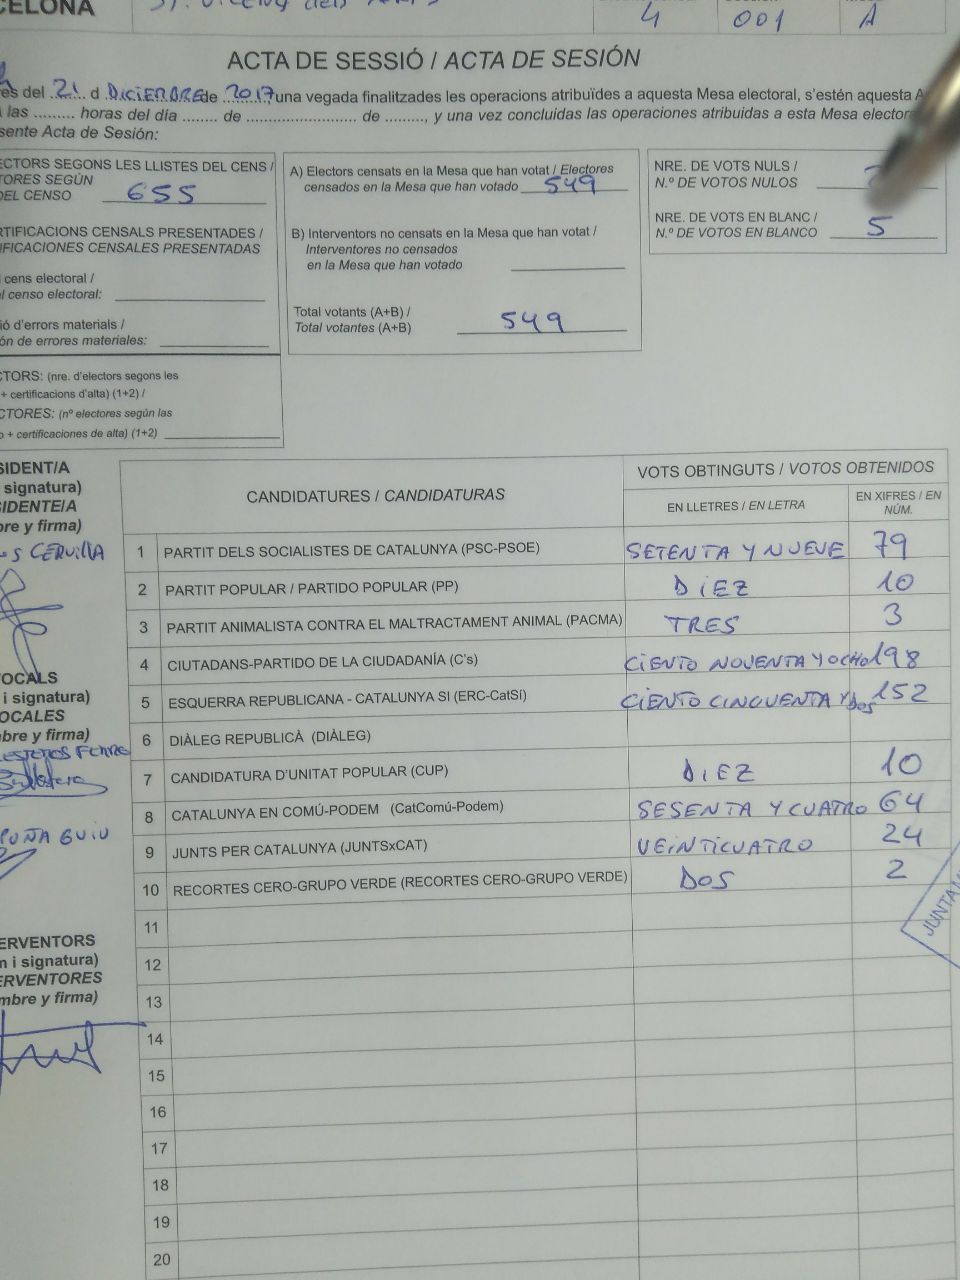 CELONA
4 001 A
ACTA DE SESSIÓ / ACTA DE SESIÓN
es del 21 d DICIEMBRE de 2017 una vegada finalitzades les operacions atribuïdes a aquesta Mesa electoral, s'estén aquesta A
las ......... horas del día ........ de ......................... de ........., y una vez concluidas las operaciones atribuidas a esta Mesa elector
sente Acta de Sesión:
ECTORS SEGONS LES LLISTES DEL CENS /
TORES SEGÚN
DEL CENSO 655
RTIFICACIONS CENSALS PRESENTADES /
IFICACIONES CENSALES PRESENTADAS
cens electoral /
l censo electoral:
ió d'errors materials /
ón de errores materiales:
CTORS: (nre. d'electors segons les
+ certificacions d'alta) (1+2) /
CTORES: (nº electores según las
o + certificaciones de alta) (1+2)
A) Electors censats en la Mesa que han votat / Electores
censados en la Mesa que han votado 549
B) Interventors no censats en la Mesa que han votat /
Interventores no censados
en la Mesa que han votado
Total votants (A+B) /
Total votantes (A+B) 549
NRE. DE VOTS NULS /
N.º DE VOTOS NULOS
NRE. DE VOTS EN BLANC /
N.º DE VOTOS EN BLANCO 5
SIDENT/A
signatura)
SIDENTE/A
bre y firma)
CERVILLA
OCALS
i signatura)
OCALES
mbre y firma)
GUIU
ERVENTORS
m i signatura)
ERVENTORES
mbre y firma)
CANDIDATURES / CANDIDATURAS
VOTS OBTINGUTS / VOTOS OBTENIDOS
EN LLETRES / EN LETRA
EN XIFRES / EN
NÚM.
1 PARTIT DELS SOCIALISTES DE CATALUNYA (PSC-PSOE) SETENTA Y NUEVE 79
2 PARTIT POPULAR / PARTIDO POPULAR (PP) DIEZ 10
3 PARTIT ANIMALISTA CONTRA EL MALTRACTAMENT ANIMAL (PACMA) TRES 3
4 CIUTADANS-PARTIDO DE LA CIUDADANÍA (C's) CIENTO NOVENTA Y OCHO 198
5 ESQUERRA REPUBLICANA - CATALUNYA SI (ERC-CatSí) CIENTO CINCUENTA Y DOS 152
6 DIÀLEG REPUBLICÀ (DIÀLEG)
7 CANDIDATURA D'UNITAT POPULAR (CUP) DIEZ 10
8 CATALUNYA EN COMÚ-PODEM (CatComú-Podem) SESENTA Y CUATRO 64
9 JUNTS PER CATALUNYA (JUNTSxCAT) VEINTICUATRO 24
10 RECORTES CERO-GRUPO VERDE (RECORTES CERO-GRUPO VERDE) DOS 2
11
12
13
14
15
16
17
18
19
20
JUNTA